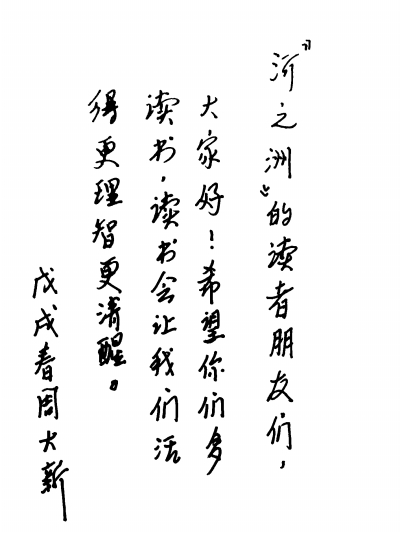 “河之洲”的读者朋友们，
大家好！希望你们多
读书，读书会让我们活
得更理智更清醒。
戊戌春周大新